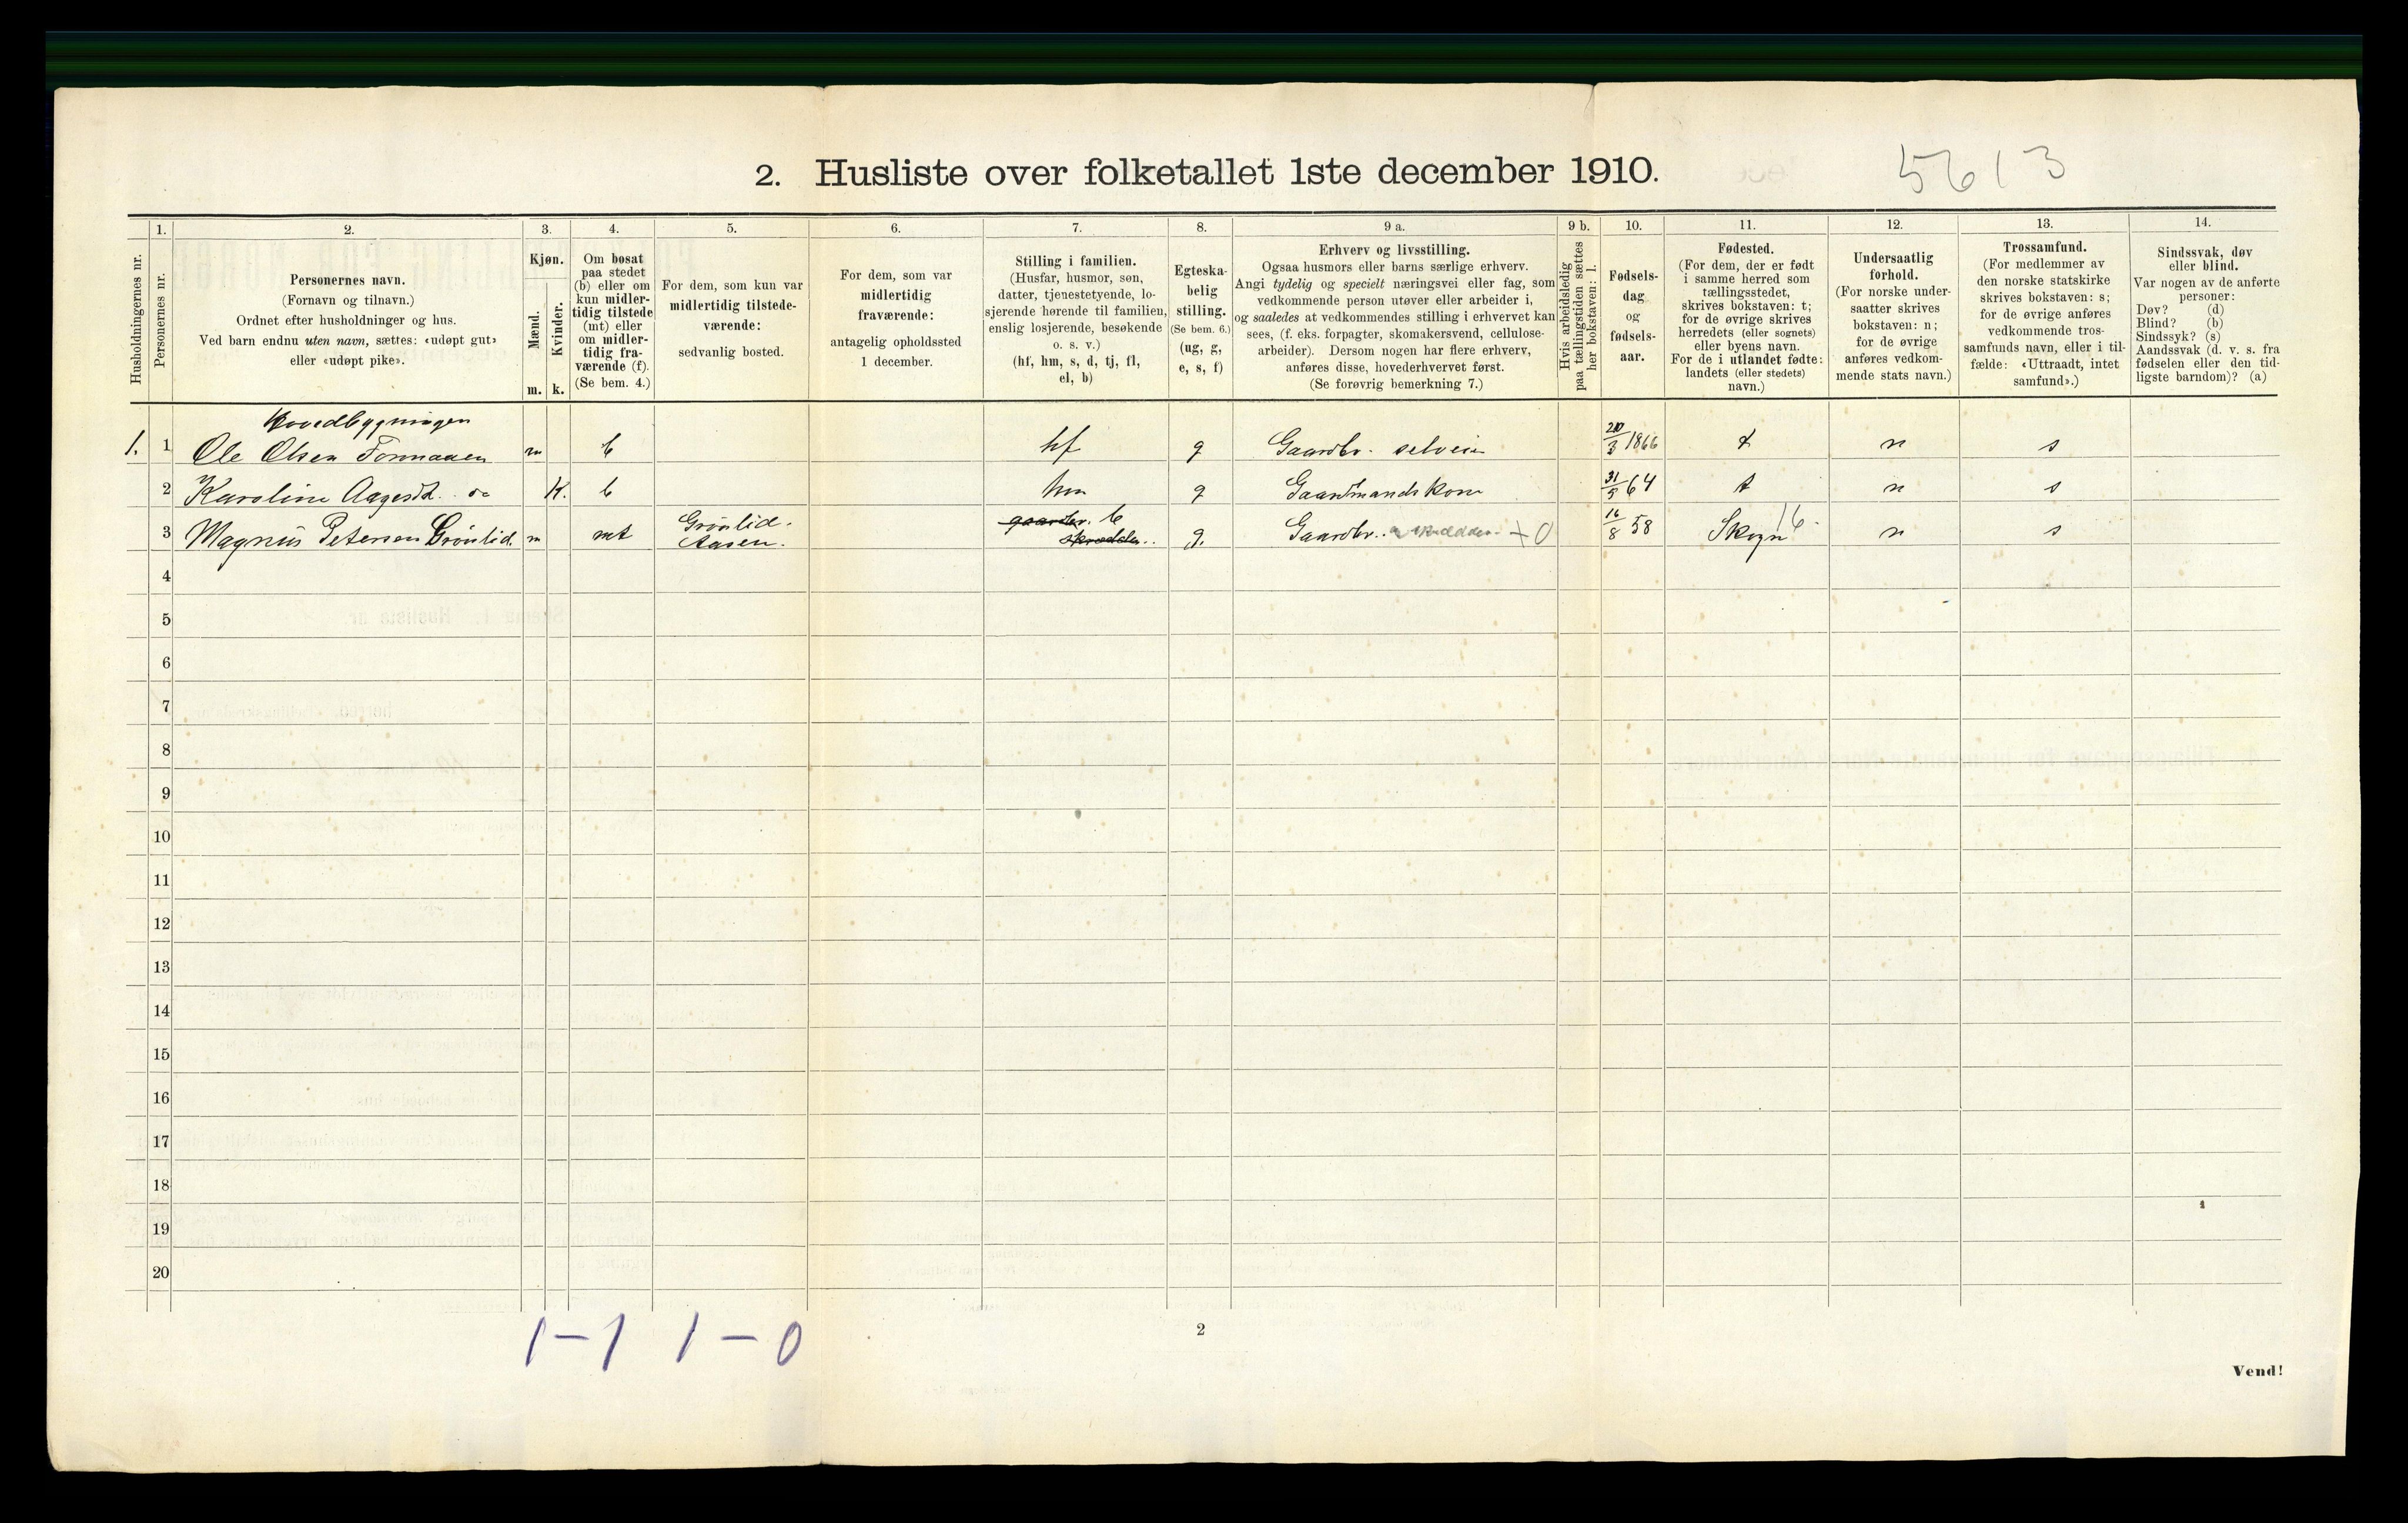 2. Husliste over folketallet 1ste december 1910.
5613
Husholdningernes nr.
1.
Personernes nr.
2.
Personernes navn.
(Fornavn og tilnavn.)
Ordnet efter husholdninger og hus.
Ved barn endnu uten navn, sættes: «udøpt gut»
eller «udøpt pike».
3.
Kjøn.
Mænd.
Kvinder.
m. k.
4.
Om bosat
paa stedet
(b) eller om
kun midler-
tidig tilstede
(mt) eller
om midler-
tidig fra-
værende (f).
(Se bem. 4.)
5.
For dem, som kun var
midlertidig tilstede-
værende:
sedvanlig bosted.
6.
For dem, som var
midlertidig
fraværende:
antagelig opholdssted
1 december.
7.
Stilling i familien.
(Husfar, husmor, søn,
datter, tjenestetyende, lo-
sjerende hørende til familien,
enslig losjerende, besøkende
o. s. v.)
(hf, hm, s, d, tj, fl,
el, b)
8.
Egteska-
belig
stilling.
(Se bem. 6.)
(ug, g,
e, s, f)
9 a.
Erhverv og livsstilling.
Ogsaa husmors eller barns særlige erhverv.
Angi tydelig og specielt næringsvei eller fag, som
vedkommende person utøver eller arbeider i,
og saaledes at vedkommendes stilling i erhvervet kan
sees, (f. eks. forpagter, skomakersvend, cellulose-
arbeider). Dersom nogen har flere erhverv,
anføres disse, hovederhvervet først.
(Se forøvrig bemerkning 7.)
9 b.
Hvis arbeidsledig
paa tællingstiden sættes
her bokstaven: l.
10.
Fødsels-
dag
og
fødsels-
aar.
11.
Fødested.
(For dem, der er født
i samme herred som
tællingsstedet,
skrives bokstaven: t;
for de øvrige skrives
herredets (eller sognets)
eller byens navn.
For de i utlandet fødte:
landets (eller stedets)
navn.)
12.
Undersaatlig
forhold.
(For norske under-
saatter skrives
bokstaven: n;
for de øvrige
anføres vedkom-
mende stats navn.)
13.
Trossamfund.
(For medlemmer av
den norske statskirke
skrives bokstaven: s;
for de øvrige anføres
vedkommende tros-
samfunds navn, eller i til-
fælde: «Uttraadt, intet
samfund».)
14.
Sindssvak, døv
eller blind.
Var nogen av de anførte
personer:
Døv? (d)
Blind? (b)
Sindssyk? (s)
Aandssvak (d. v. s. fra
fødselen eller den tid-
ligste barndom)? (a)
Hovedbygningen
1. 1 Ole Olsen Formaaen m b hf g Gaardbr. selveier 20/3 1866 t n s
2 Karoline Aagesd. do K. b hm g Gaardmandskone 31/5 64 t n s
3 Magnus Petersen Grönlid. m mt Grönlid. Aasen. gaardbr. b skrædder. g. Gaardbr. +0 16/8 58 Skogn 16. n s
4
5
6
7
8
9
10
11
12
13
14
15
16
17
18
19
20
1-1 1-0
2
Vend!